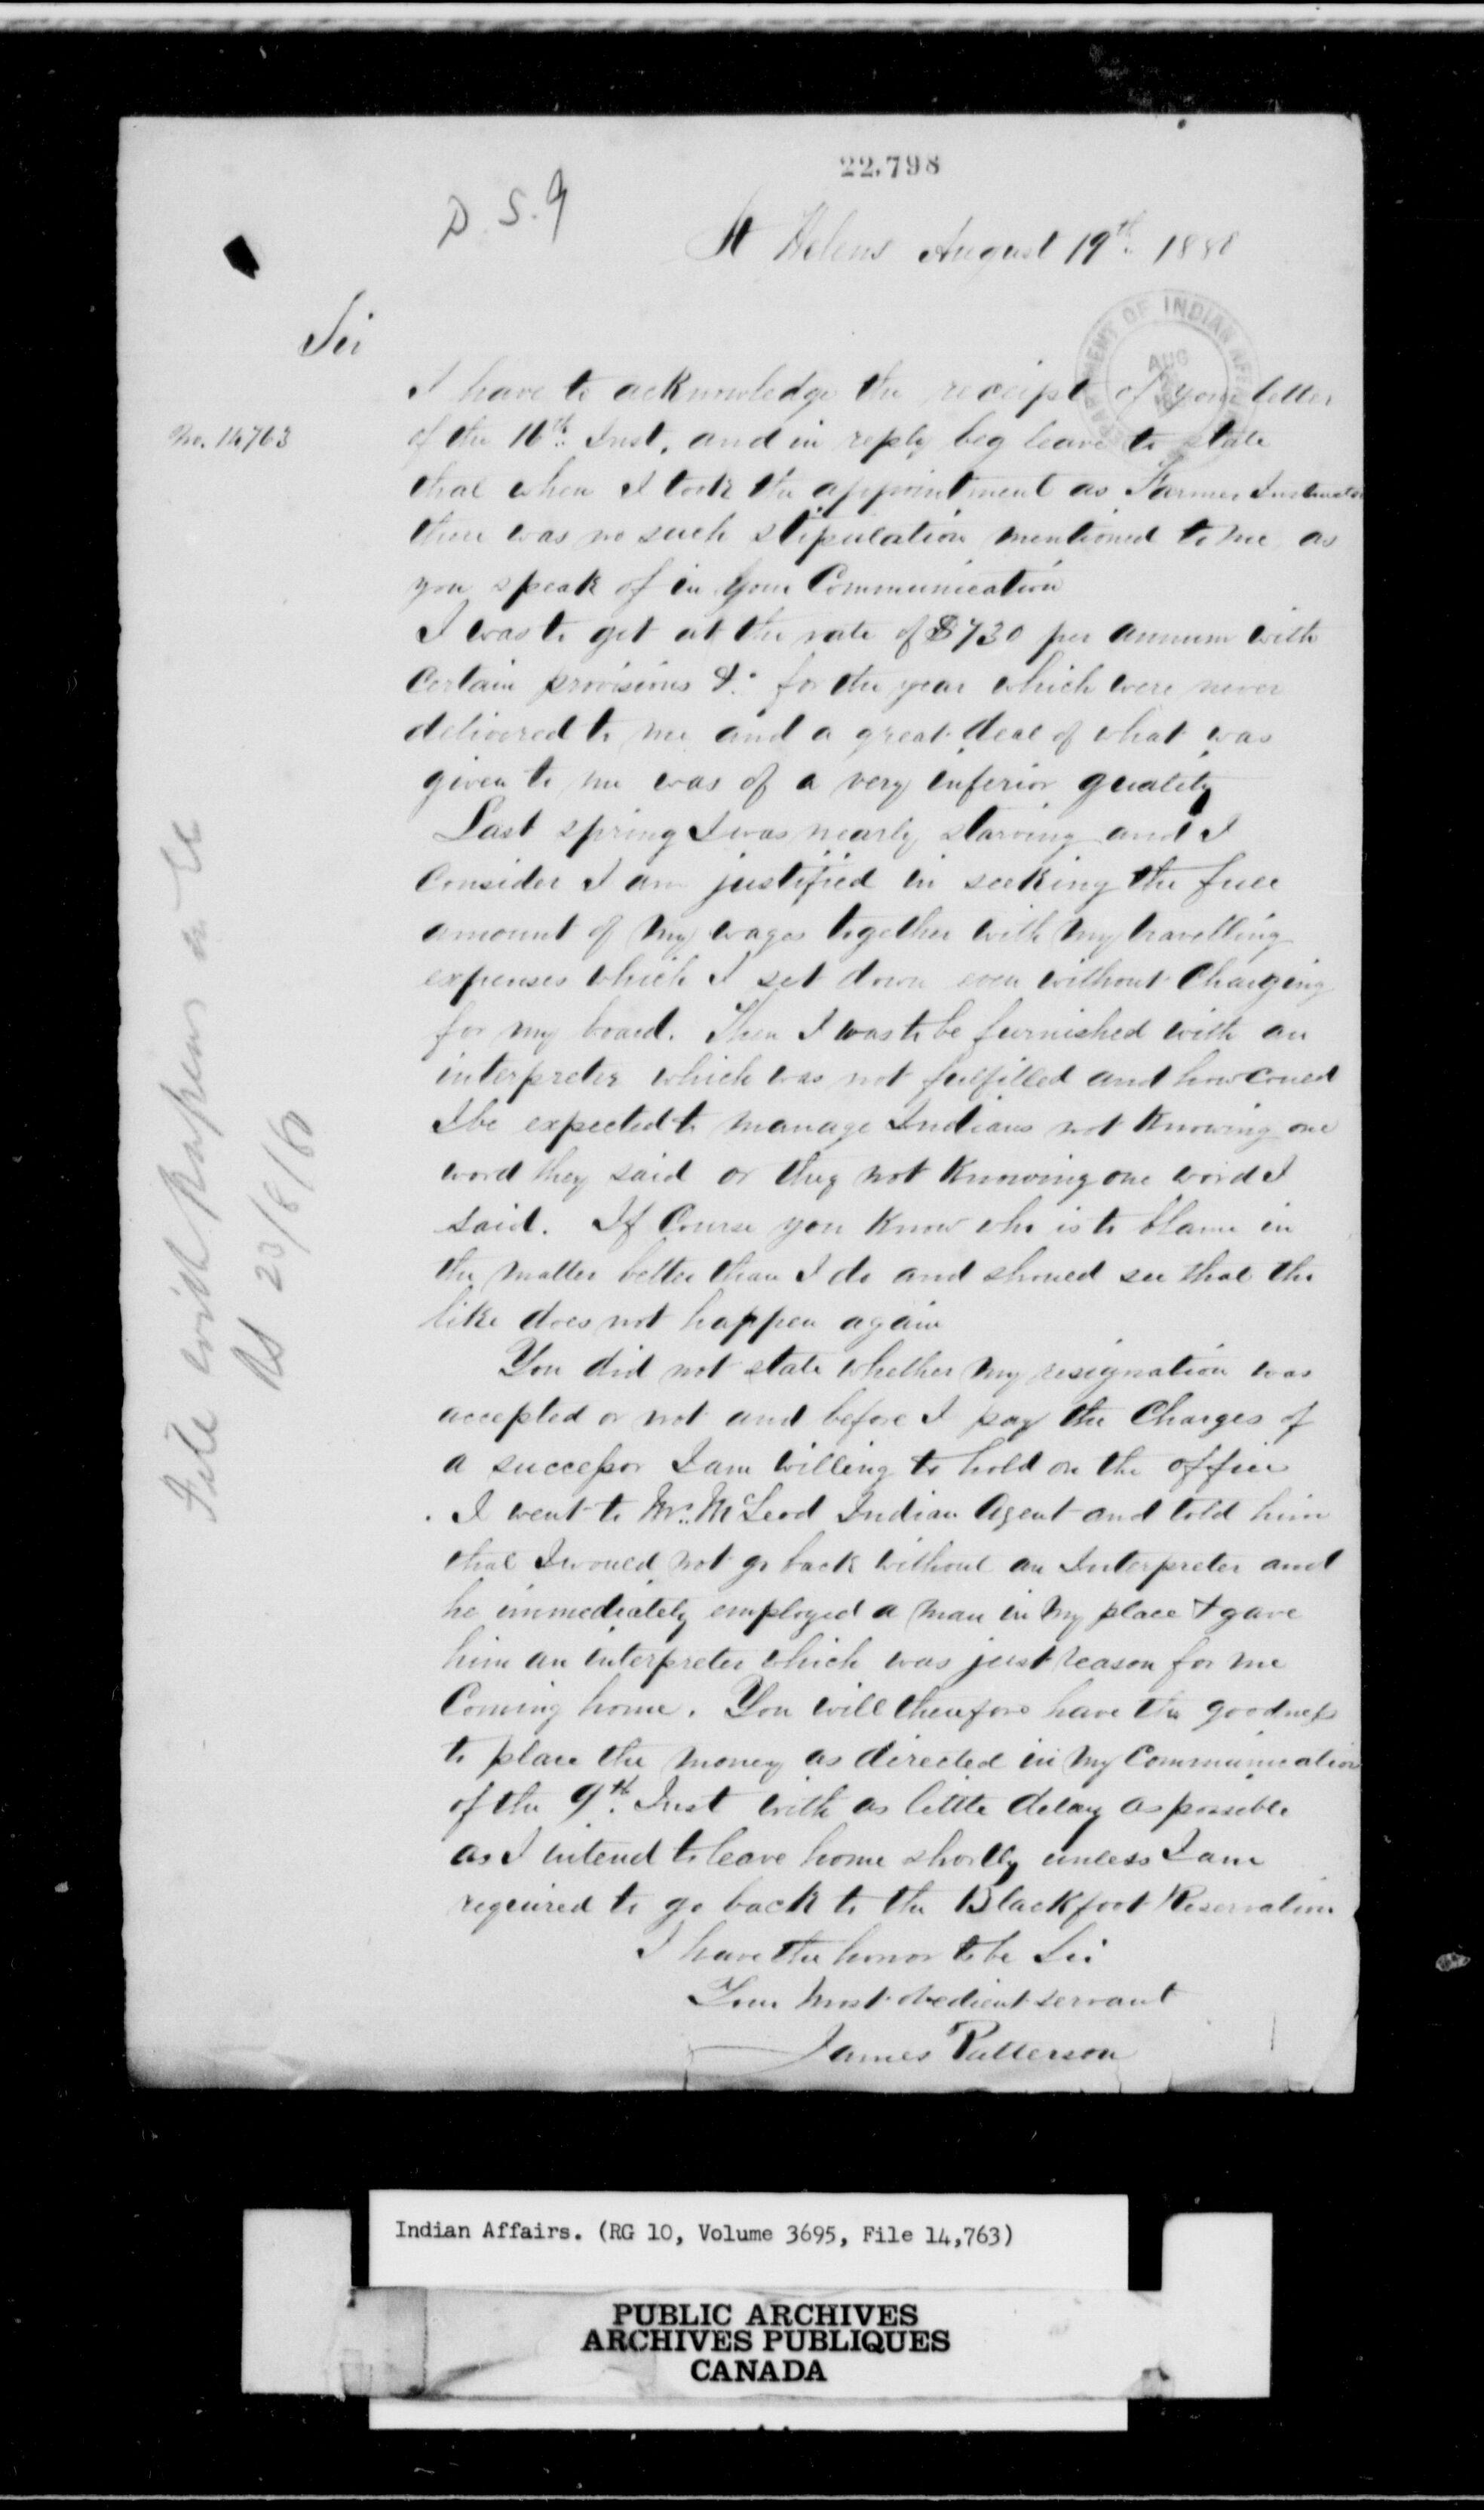 22,798
D. S. G
St Helens August 19th 1880
DEPARTMENT OF INDIAN AFFAIRS
AUG
Sir
I have to acknowledge the receipt of your letter
No. 14763
of the 16th Inst, and in reply beg leave to state
that when I took the appointment as Farmer Instructor
there was no such stipulation mentioned to me as
you speak of in your Communication
I was to get at the rate of $730 per annum with
Certain provisions &c for the year which were never
delivered to me and a great deal of what was
given to me was of a very inferior quality
Last spring I was nearly starving and I
Consider I am justified in seeking the full
amount of my wages together with my travelling
expenses which I set down even without Charging
for my board. Then I was to be furnished with an
interpreter which was not fulfilled and how could
I be expected to manage Indians not knowing one
word they said or they not knowing one word I
said. Of Course you know who is to blame in
the matter better than I do and should see that the
like does not happen again
You did not state whether my resignation was
accepted or not and before I pay the Charges of
a successor I am willing to hold on the office
I went to Mr. McLeod Indian Agent and told him
that I would not go back without an Interpreter and
he immediately employed a man in my place & gave
him an interpreter which was just reason for me
Coming home. You will therefore have the goodness
to place the money as directed in my Communication
of the 9th Inst with as little delay as possible
as I intend to leave home shortly unless I am
required to go back to the Blackfoot Reservation
I have the honor to be Sir
Your most obedient servant
James Patterson
File with Papers
23/8/80
Indian Affairs. (RG 10, Volume 3695, File 14,763)
PUBLIC ARCHIVES
ARCHIVES PUBLIQUES
CANADA